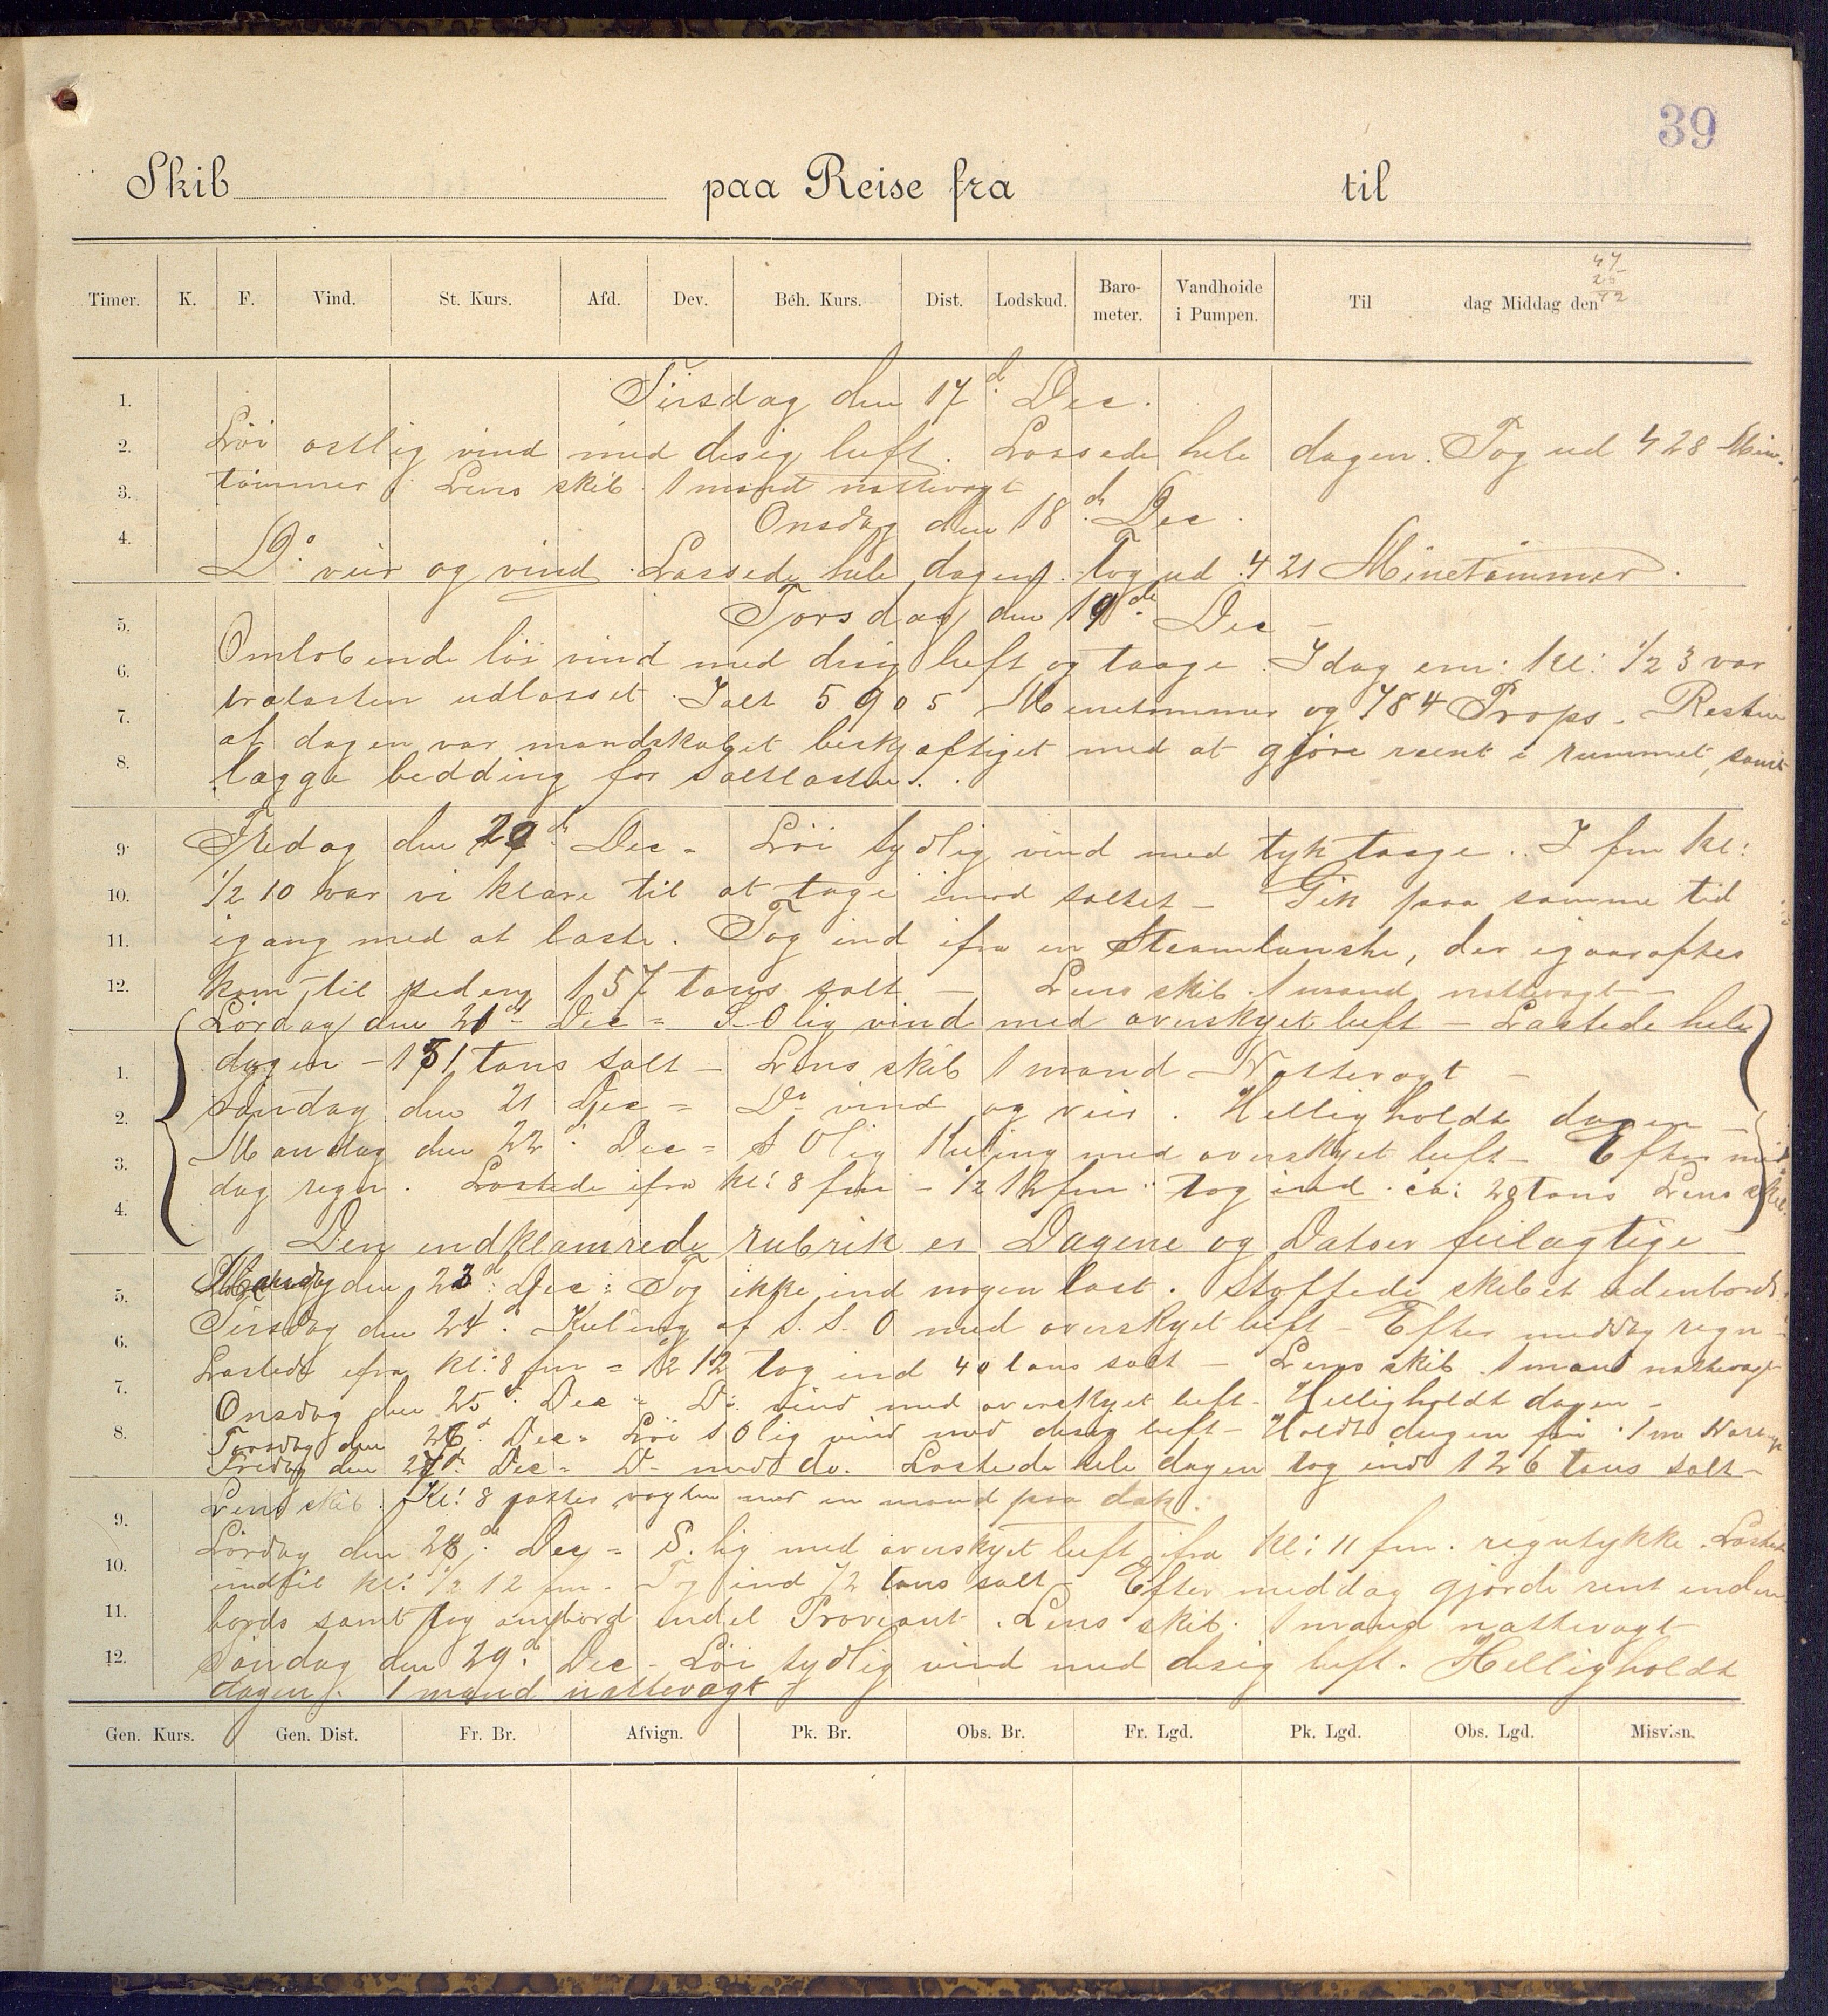 39
Skib paa Reise fra til
47
25
72
Timer. K. F. Vind. St. Kurs. Afd. Dev. Beh. Kurs. Dist. Lodskud. Baro-meter. Vandhoide i Pumpen. Til dag Middag den
1. Tirsdag den 17d. Dec.
2. Löi ostlig vind med disig luft. Lossede hele dagen. Tog ud 428 Mine-
3. tömmer. Lens skib. 1 mand nattevagt
4. Onsdag den 18de. Dec.
Do. veir og vind. Lossede hele dagen. Tog ud 421 Minetömmer.
5. Torsdag den 19de. Dec -
6. Omlobende löi vind med disig luft og taage. Idag em: kl: 1/2 3 var
7. trælasten udlosset. Ialt 5905 Minetömmer og 784 Props. Resten
8. af dagen var mandskabet beskjæftiget med at gjöre reent i rummet, samt
lægge bedding for saltlasten.
9. Fredag den 20de Dec - Löi sydlig vind med tyk taage. I fm kl:
10. 1/2 10 var vi klare til at tage imod saltet - Gik paa samme tid
11. igang med at laste. Tog ind ifra en Steamlanske, der igaaraftes
12. kom til siden, 157 tons salt - Lens skib. 1 mand nattevagt -
Lördag den 21de Dec = S.Olig vind med overskyet luft - Lastede hele
1. dagen - 151 tons salt - Lens skib 1 mand Nattevagt -
2. Söndag den 21 Dec = Do vind og veir. Helligholdt dagen -
3. Mandag den 22d. Dec = S Olig Kuling med overskyet luft - Efter mid
4. dag regn. Lastede ifra kl: 8 fm - 1/2 12 fm: tog ind ca: 28 tons Lens skib.
Den indklamrede rubrik er Dagene og Datoer feilagtige
5. Mandag den 23d. Dec: Tog ikke ind nogen last. Stoffede skibet udenbords.
6. Tirsdag den 24d. Kuling af S.S.O med overskyet luft - Efter middag regn -
Lastede ifra kl: 8 fm = 1/2 12 tog ind 40 tons salt - Lens skib. 1 mand nattevagt
7. Onsdag den 25d. Dec - Do. vind med overskyet luft - Helligholdt dagen -
8. Torsdag den 26d. Dec = Löi S Olig vind med disig luft - Holdt dagen fri. 1 m
Fredag den 27de. Dec - D- med do. Lastede hele dagen tog ind 126 tons salt -
9. Lens skib. Kl: 8 vagten med en mand paa dæk.
10. Lördag den 28de. Dec = S.lig med overskyet luft ifra kl: 11 fm. regntykke. Lastede
indtil kl: 1/2 12 fm - Tog ind 72 tons salt - Efter middag gjorde rent inden-
11. bords samt tog ombord endel Proviant. Lens skib. 1 mand nattevagt
12. Söndag den 29de. Dec - Löi sydlig vind med disig luft. Helligholdt
dagen. 1 mand nattevagt -
Gen. Kurs. Gen. Dist. Fr. Br. Afvign. Pk. Br. Obs. Br. Fr. Lgd. Pk. Lgd. Obs. Lgd. Misvisn.